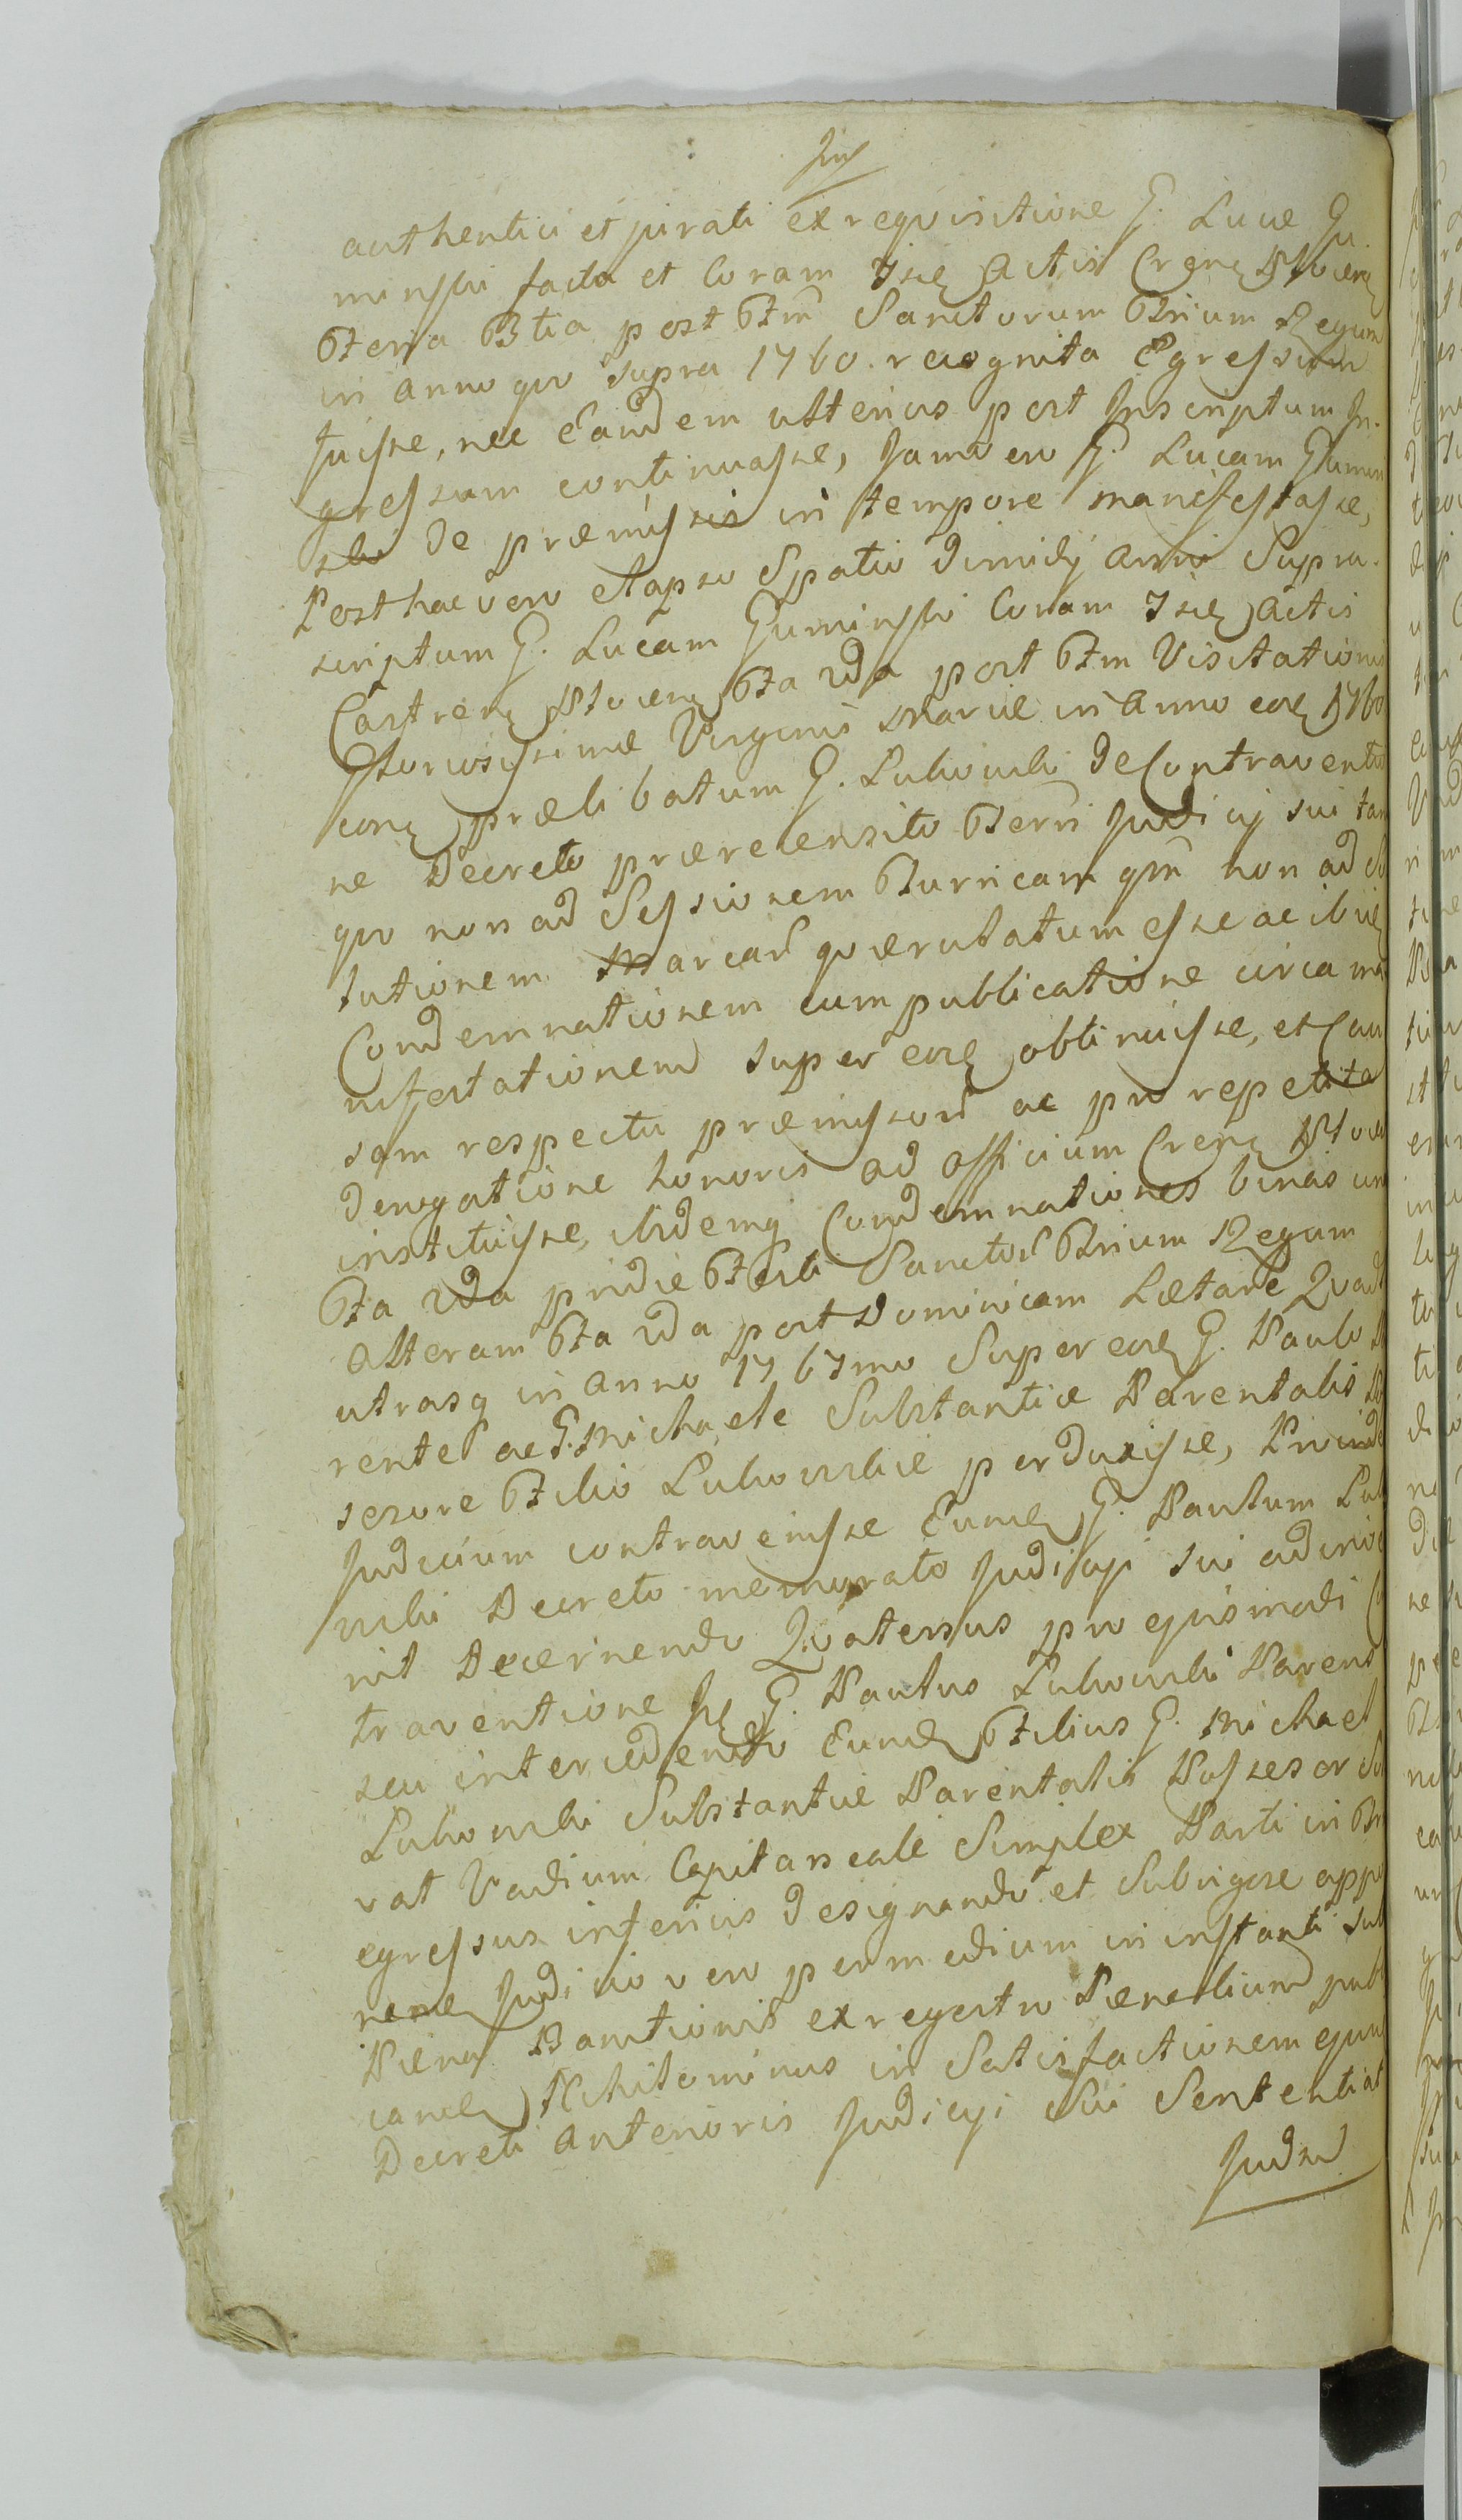 authentici et jurati ex reqvisitione G. Lucæ Gu.
minski facta et Coram Isis Actis Crens Plocens
Feria 3tia post Ftm Sanctorum Trium Regum
in anno qvo supra 1760. recognita Egressum
fuisse, nec Eandem ulterius post Inscriptum In-
gressum continuasse, Jam vero G. Lucam Gumin
ski de præmissis in tempore manifestasse,
Post hac vero elapso Spatio dimidij anni Supra.
scriptum G. Lucam Guminski Coram Isis Actis
Castrens Plocens Fa 2da post Ftm Visitationis
Gloriosissimæ Virginis Mariæ in Anno eod 1760
cong prælibatum G. Lukowski de Contraventio
ne Decreto prærecensito Terris Judicij sui tam
qvo non ad Sessionem Turricam qm non ad So
lutionem Marcar qværulatum esse ac ibid
Condemnationem cum publicatione circa ma
nifestationem super eod obtinuisse, et Cau
sam respectu præmissor ac pro repetita
derogatione honoris ad officium Crens Plocen
instituisse, ibidemq Condemnationes binas un
Fa 2da pridie Festi Sanctor Trium Regum
Alteram Fa 2da post Dominicam Lætare Quad
utrasq in Anno 1761mo Super eod G. Paulo
rente ac G. Michaele Substantiæ Parentalis
sesore Filio Lukowskie perduxisse, Proinde
Judicium contravenisse Eund G. Paulum Luk
owski Decreto memorato Judicyi sui adinve
nit Decernendo Quatenus pro ejusmodi
traventione Id G. Paulus Lukowski Parens
seu intercedendo Eund Filius G. Michael
Lukowski Substantiæ Parentalis Possesor
vat Vadium Capitaneale Simplex Parti in
egressus inferius designando et Subrigose
nend Judicio vero per medium in instanti sub
Pœna Banitionis ex regestro Pœnalium pub
cand Nihilominus in Satisfactionem ejund
Decreti Anterioris Judicyi Sui Sententiat